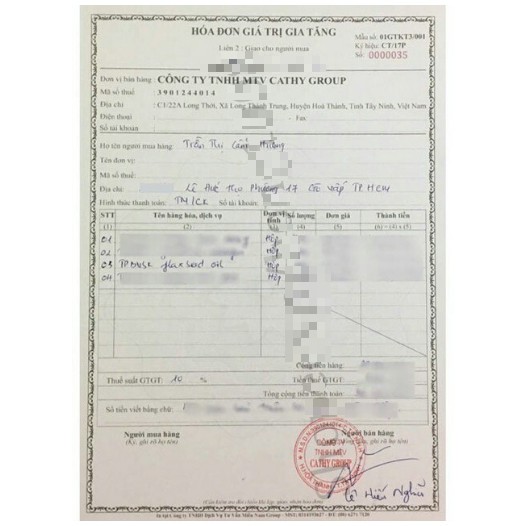 HÓA ĐƠN GIÁ TRỊ GIA TĂNG
Liên 2: Giao cho người mua
Mẫu số: 01GTKT3/001
Ký hiệu: CT/17P
Số: 0000035
Đơn vị bán hàng: CÔNG TY TNHH MTV CATHY GROUP
Mã số thuế 3901244014
Địa chỉ : C1/22A Long Thới, Xã Long Thành Trung, Huyện Hoà Thành, Tỉnh Tây Ninh, Việt Nam
Điện thoại : - Fax
Số tài khoản :
Họ tên người mua hàng: Trần Thị
Tên đơn vị:
Mã số thuế:
Địa chỉ: Phường 17 Gò Vấp TPHCM
Hình thức thanh toán: TM/CK Số tài khoản:
STT Tên hàng hóa, dịch vụ Đơn vị tính Số lượng Đơn giá Thành tiền
(1) (2) (4) (5) (6) = (4) x (5)
01 Hộp
02 Hộp
03 flaxseed oil Hộp
04 Hộp
Cộng tiền hàng:
Thuế suất GTGT: 10 % Tiền thuế GTGT:
Tổng cộng tiền thanh toán:
Số tiền viết bằng chữ:
Người mua hàng Người bán hàng
(Ký, ghi rõ họ tên) (Ký, ghi rõ họ tên)
CÔNG TY
TNHH MTV
CATHY GROUP
Lê Hiếu Nghĩa